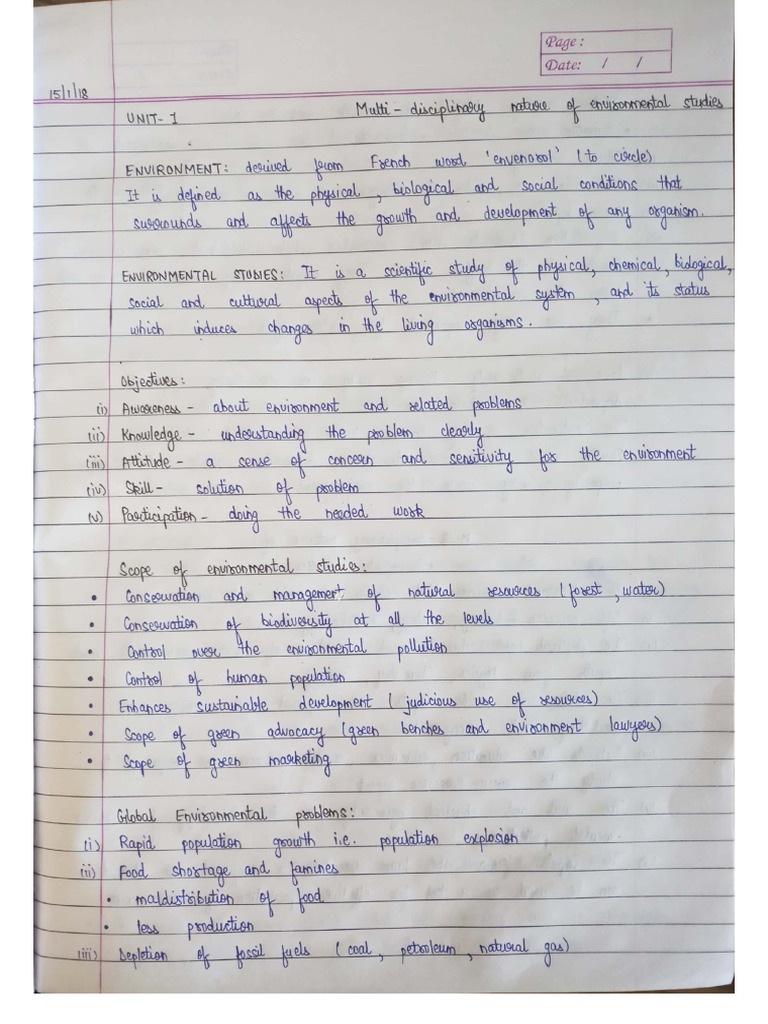 Page :
Date: / /
15/1/18
UNIT- 1 Multi - disciplinary nature of environmental studies
ENVIRONMENT: derived from French word 'envenorol' (to circle)
It is defined as the physical, biological and social conditions that
surrounds and affects the growth and development of any organism.
ENVIRONMENTAL STUDIES: It is a scientific study of physical, chemical, biological,
social and cultural aspects of the environmental system, and its status
which induces changes in the living organisms.
Objectives:
(i) Awareness - about environment and related problems
(ii) Knowledge - understanding the problem clearly
(iii) Attitude - a sense of concern and sensitivity for the environment
(iv) Skill - solution of problem
(v) Participation - doing the needed work
Scope of environmental studies:
• Conservation and management of natural resources (forest, water)
• Conservation of biodiversity at all the levels
• Control over the environmental pollution
• Control of human population
• Enhances sustainable development ( judicious use of resources)
• Scope of green advocacy (green benches and environment lawyers)
• Scope of green marketing
Global Environmental problems:
(i) Rapid population growth i.e. population explosion
(ii) Food shortage and famines
• maldistribution of food
• less production
(iii) Depletion of fossil fuels (coal, petroleum, natural gas)